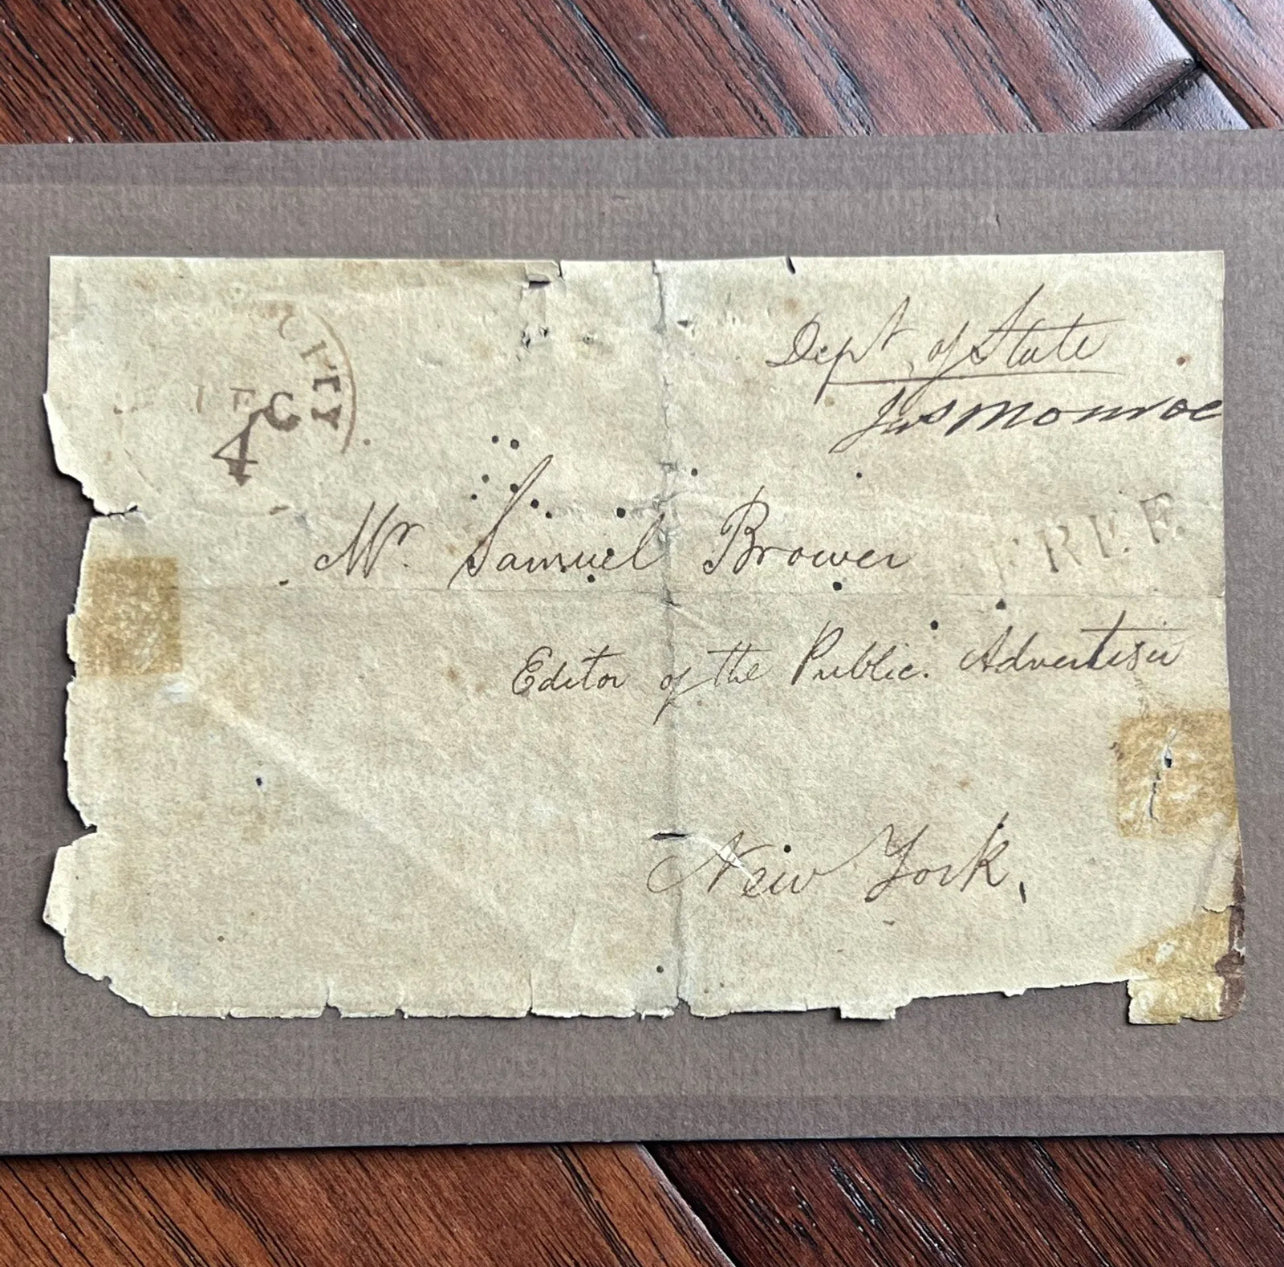 Dept of State
Jas Monroe
CITY
DEC
4
FREE.
Mr. Samuel Brower
Editor of the Public. Advertiser
New York,